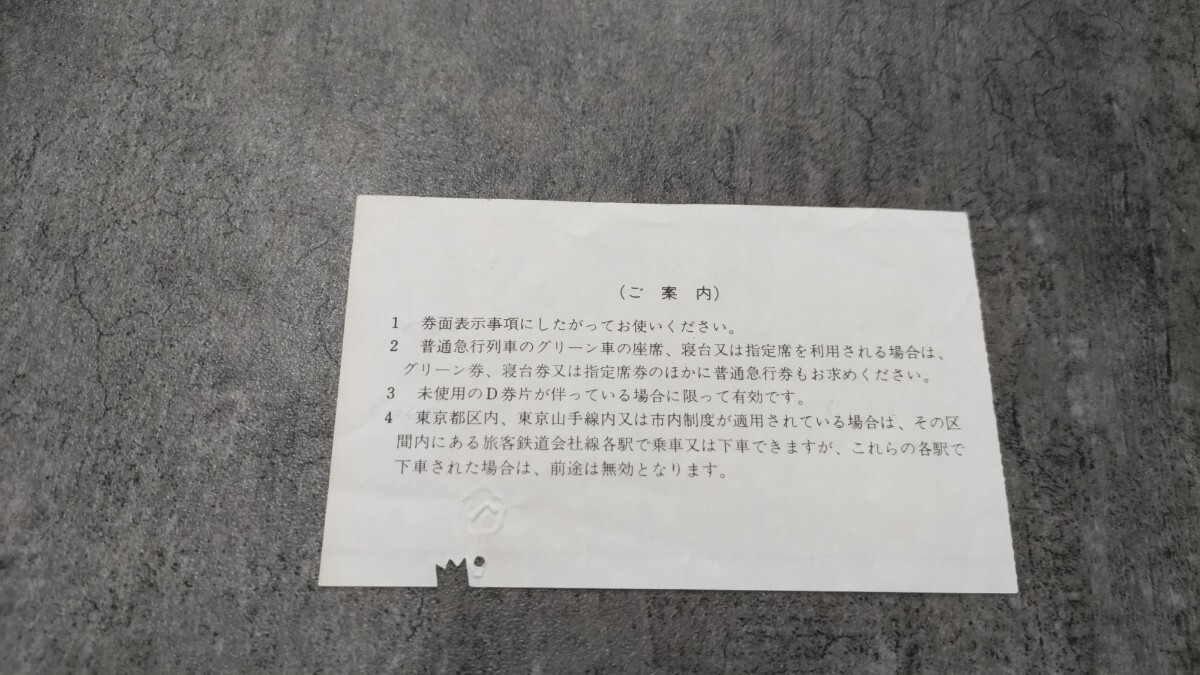 (ご案内)
1 券面表示事項にしたがってお使いください。
2 普通急行列車のグリーン車の座席、寝台又は指定席を利用される場合は、
グリーン券、寝台券又は指定席券のほかに普通急行券もお求めください。
3 未使用のD券片が伴っている場合に限って有効です。
4 東京都区内、東京山手線内又は市内制度が適用されている場合は、その区
間内にある旅客鉄道会社線各駅で乗車又は下車できますが、これらの各駅で
下車された場合は、前途は無効となります。